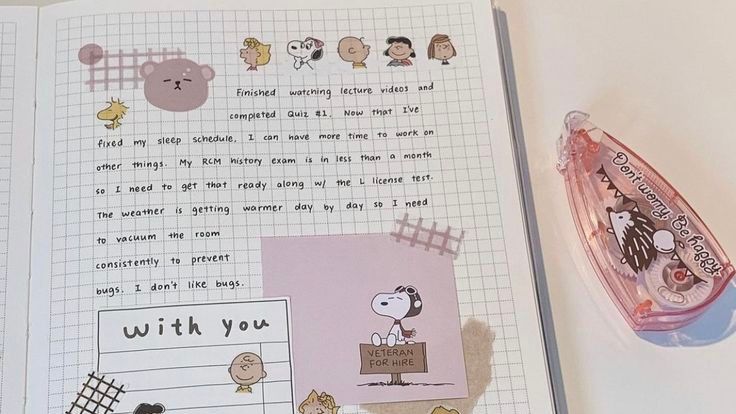 Finished watching lecture videos and
completed Quiz #1. Now that I've
fixed my sleep schedule, I can have more time to work on
other things. My RCM history exam is in less than a month
so I need to get that ready along w/ the L license test.
The weather is getting warmer day by day so I need
to vacuum the room
consistently to prevent
bugs. I don't like bugs.
with you
VETERAN
FOR HIRE
Don't worry, Be happy